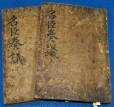 名臣奏議
名臣奏議